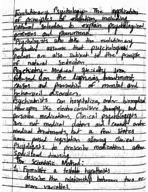 Evolutionary Psychology - The application
of principles of evolution, including
natural selection, to explain psychological
processes and phenomena.
Psychologists who take an evolutionary
approach assume that psychological
nature are also subject to the principle
of natural selection.
Psychiatry - Medical Specialty from
focused on the diagnosis, treatment,
causes and prevention of mental and
behavioral disorders.
Psychiatrists can hospitalize, order biological
therapies like electroconvulsive therapy, and
prescribe medications. Clinical psychologists
are not medical doctors and cannot order
medical treatments, but a few states
have passed legislation allowing clinical
Psychologists to prescribe medications after
specialized training.
The Scientific Method:
1. Formulate a testable hypothesis
describe the relationship between two or
more variables.